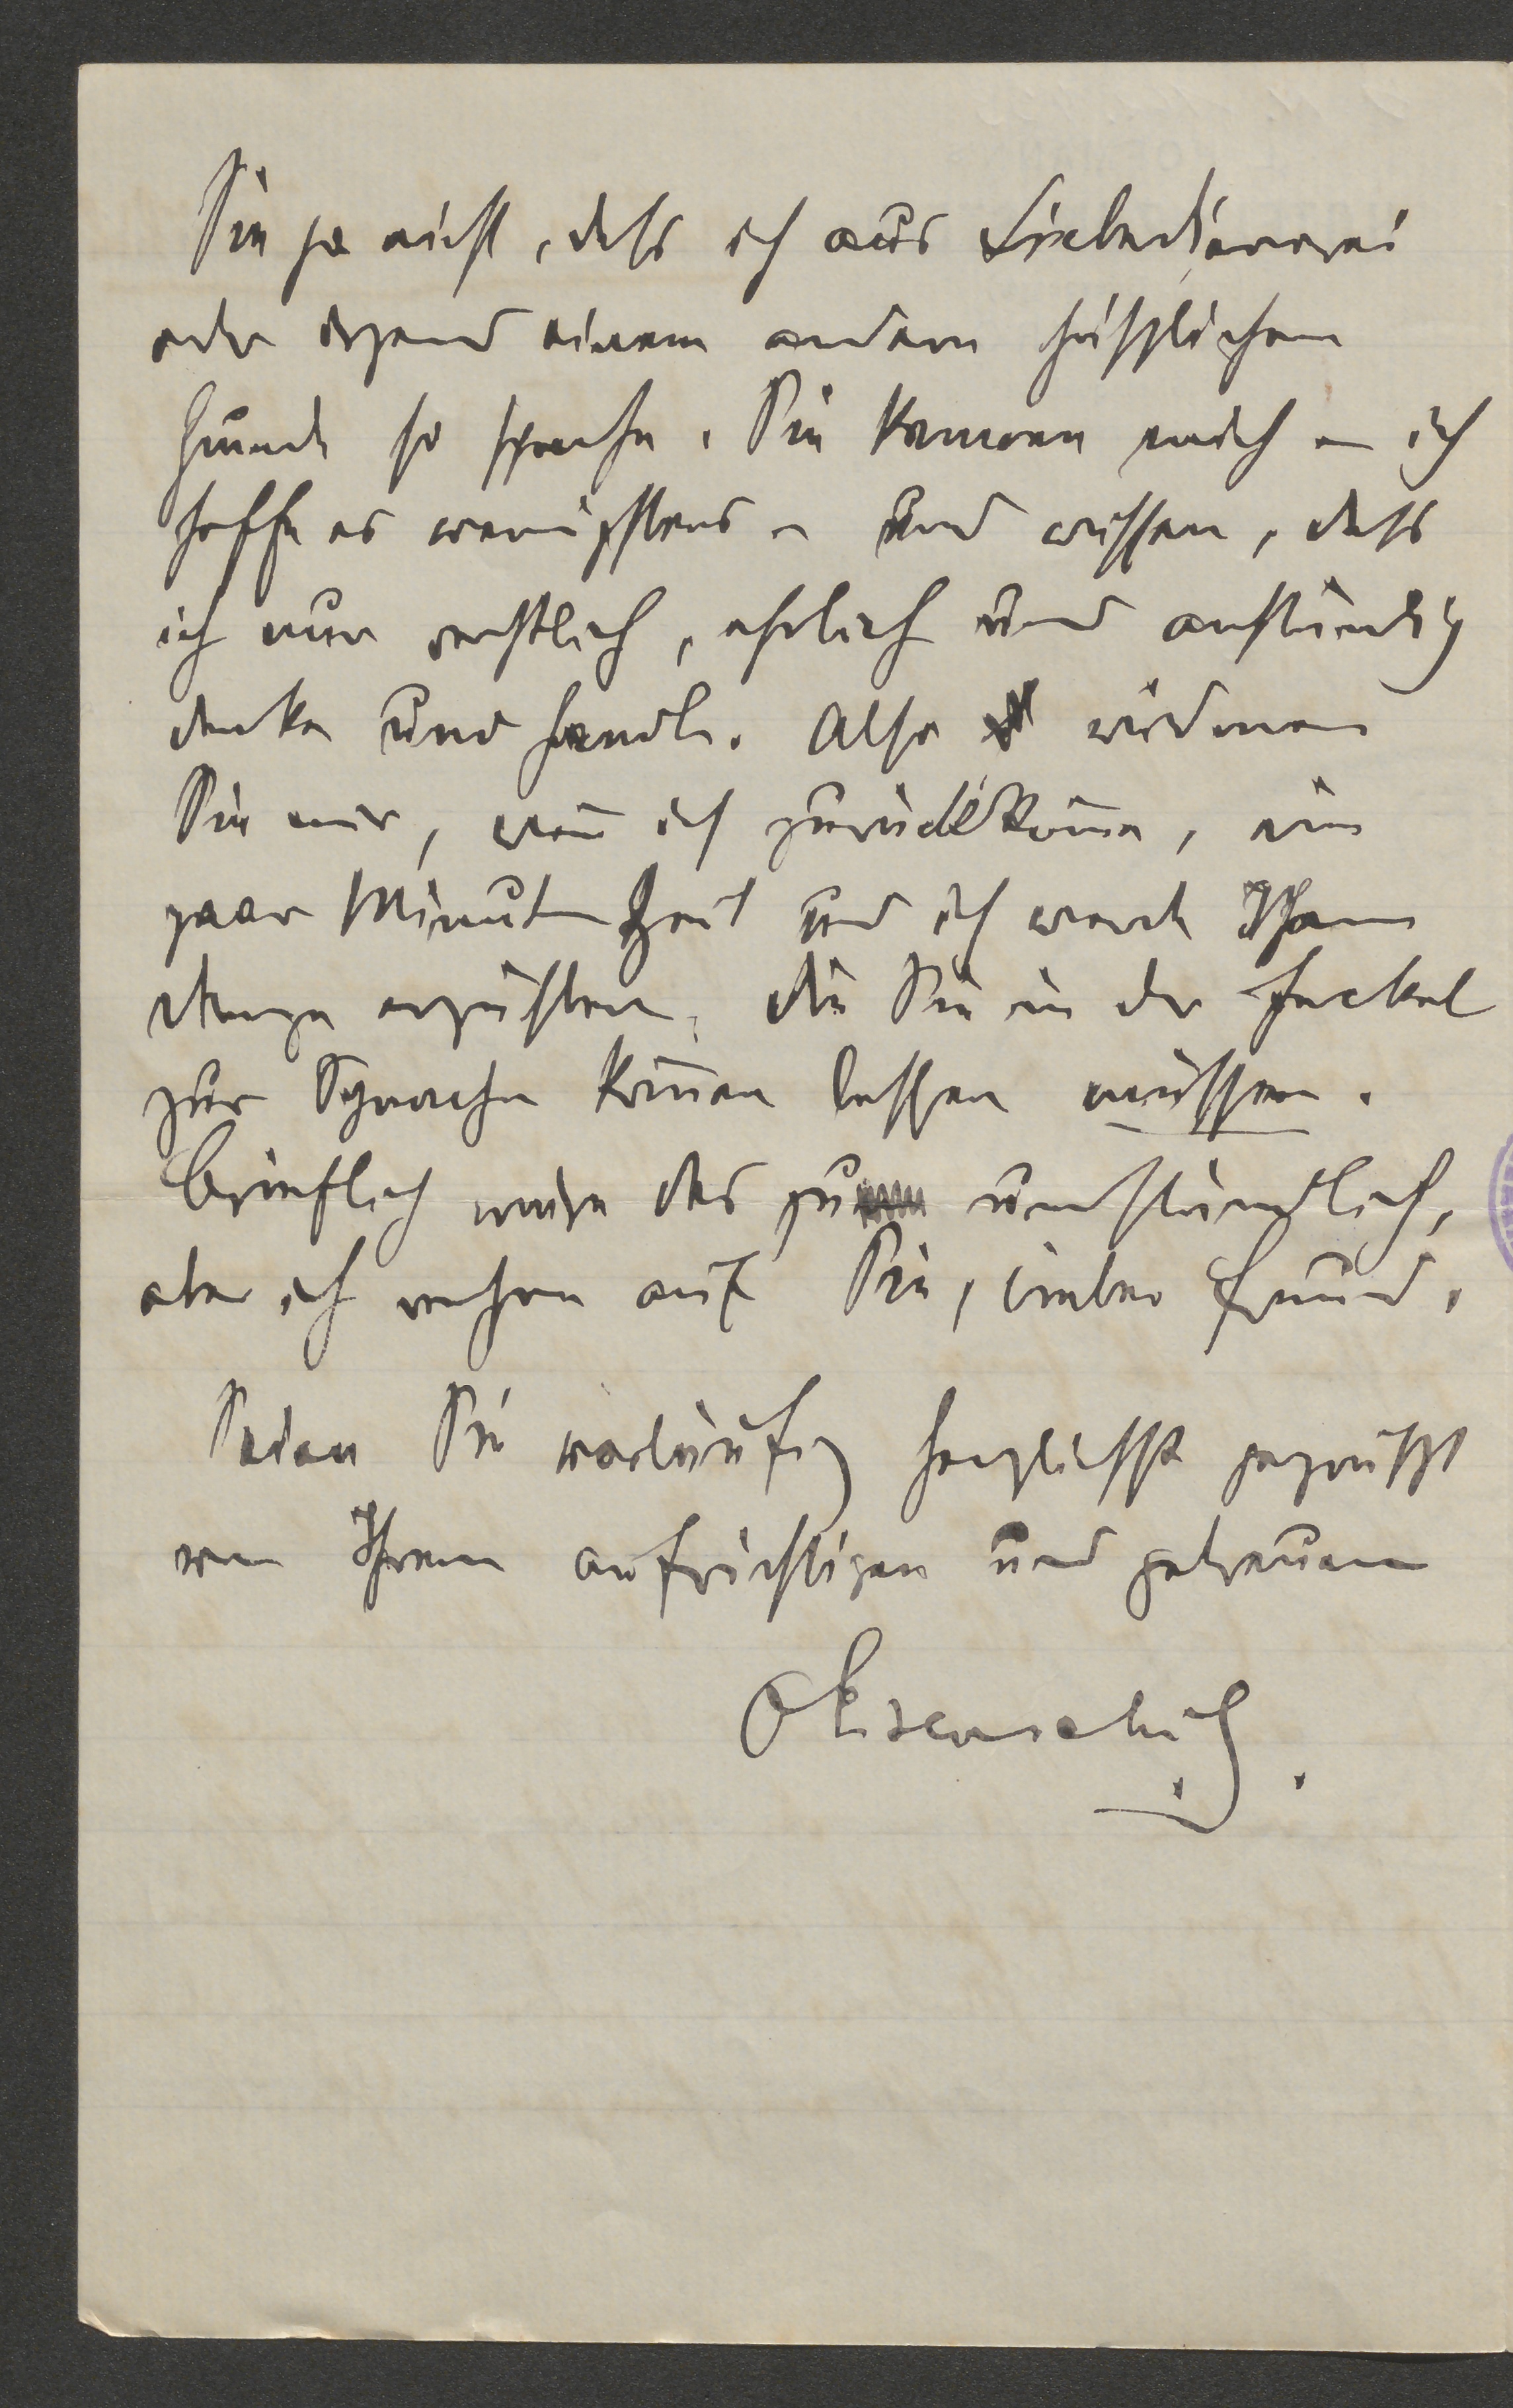 Sie ja nicht, daß ich aus Liebedienerei
oder irgend einem andern häßlichen
Grunde so spreche. Sie kennen mich – ich
hoffe es wenigstens – und wissen, daß
ich nur rechtlich, ehrlich und anständig
denke und handle. Also widmen
Sie mir, wen̄ ich zurückkom̄e, ein
paar Minuten Zeit und ich werde Ihnen
Dinge erzählen, die Sie in der Fackel
zur Sprache kom̄en lassen müssen.
Brieflich wäre das zu umständlich,
aber ich rechne auf Sie, lieber Freund.
Seien Sie vorläufig herzlichst gegrüßt
von Ihrem aufrichtigen und getreuen